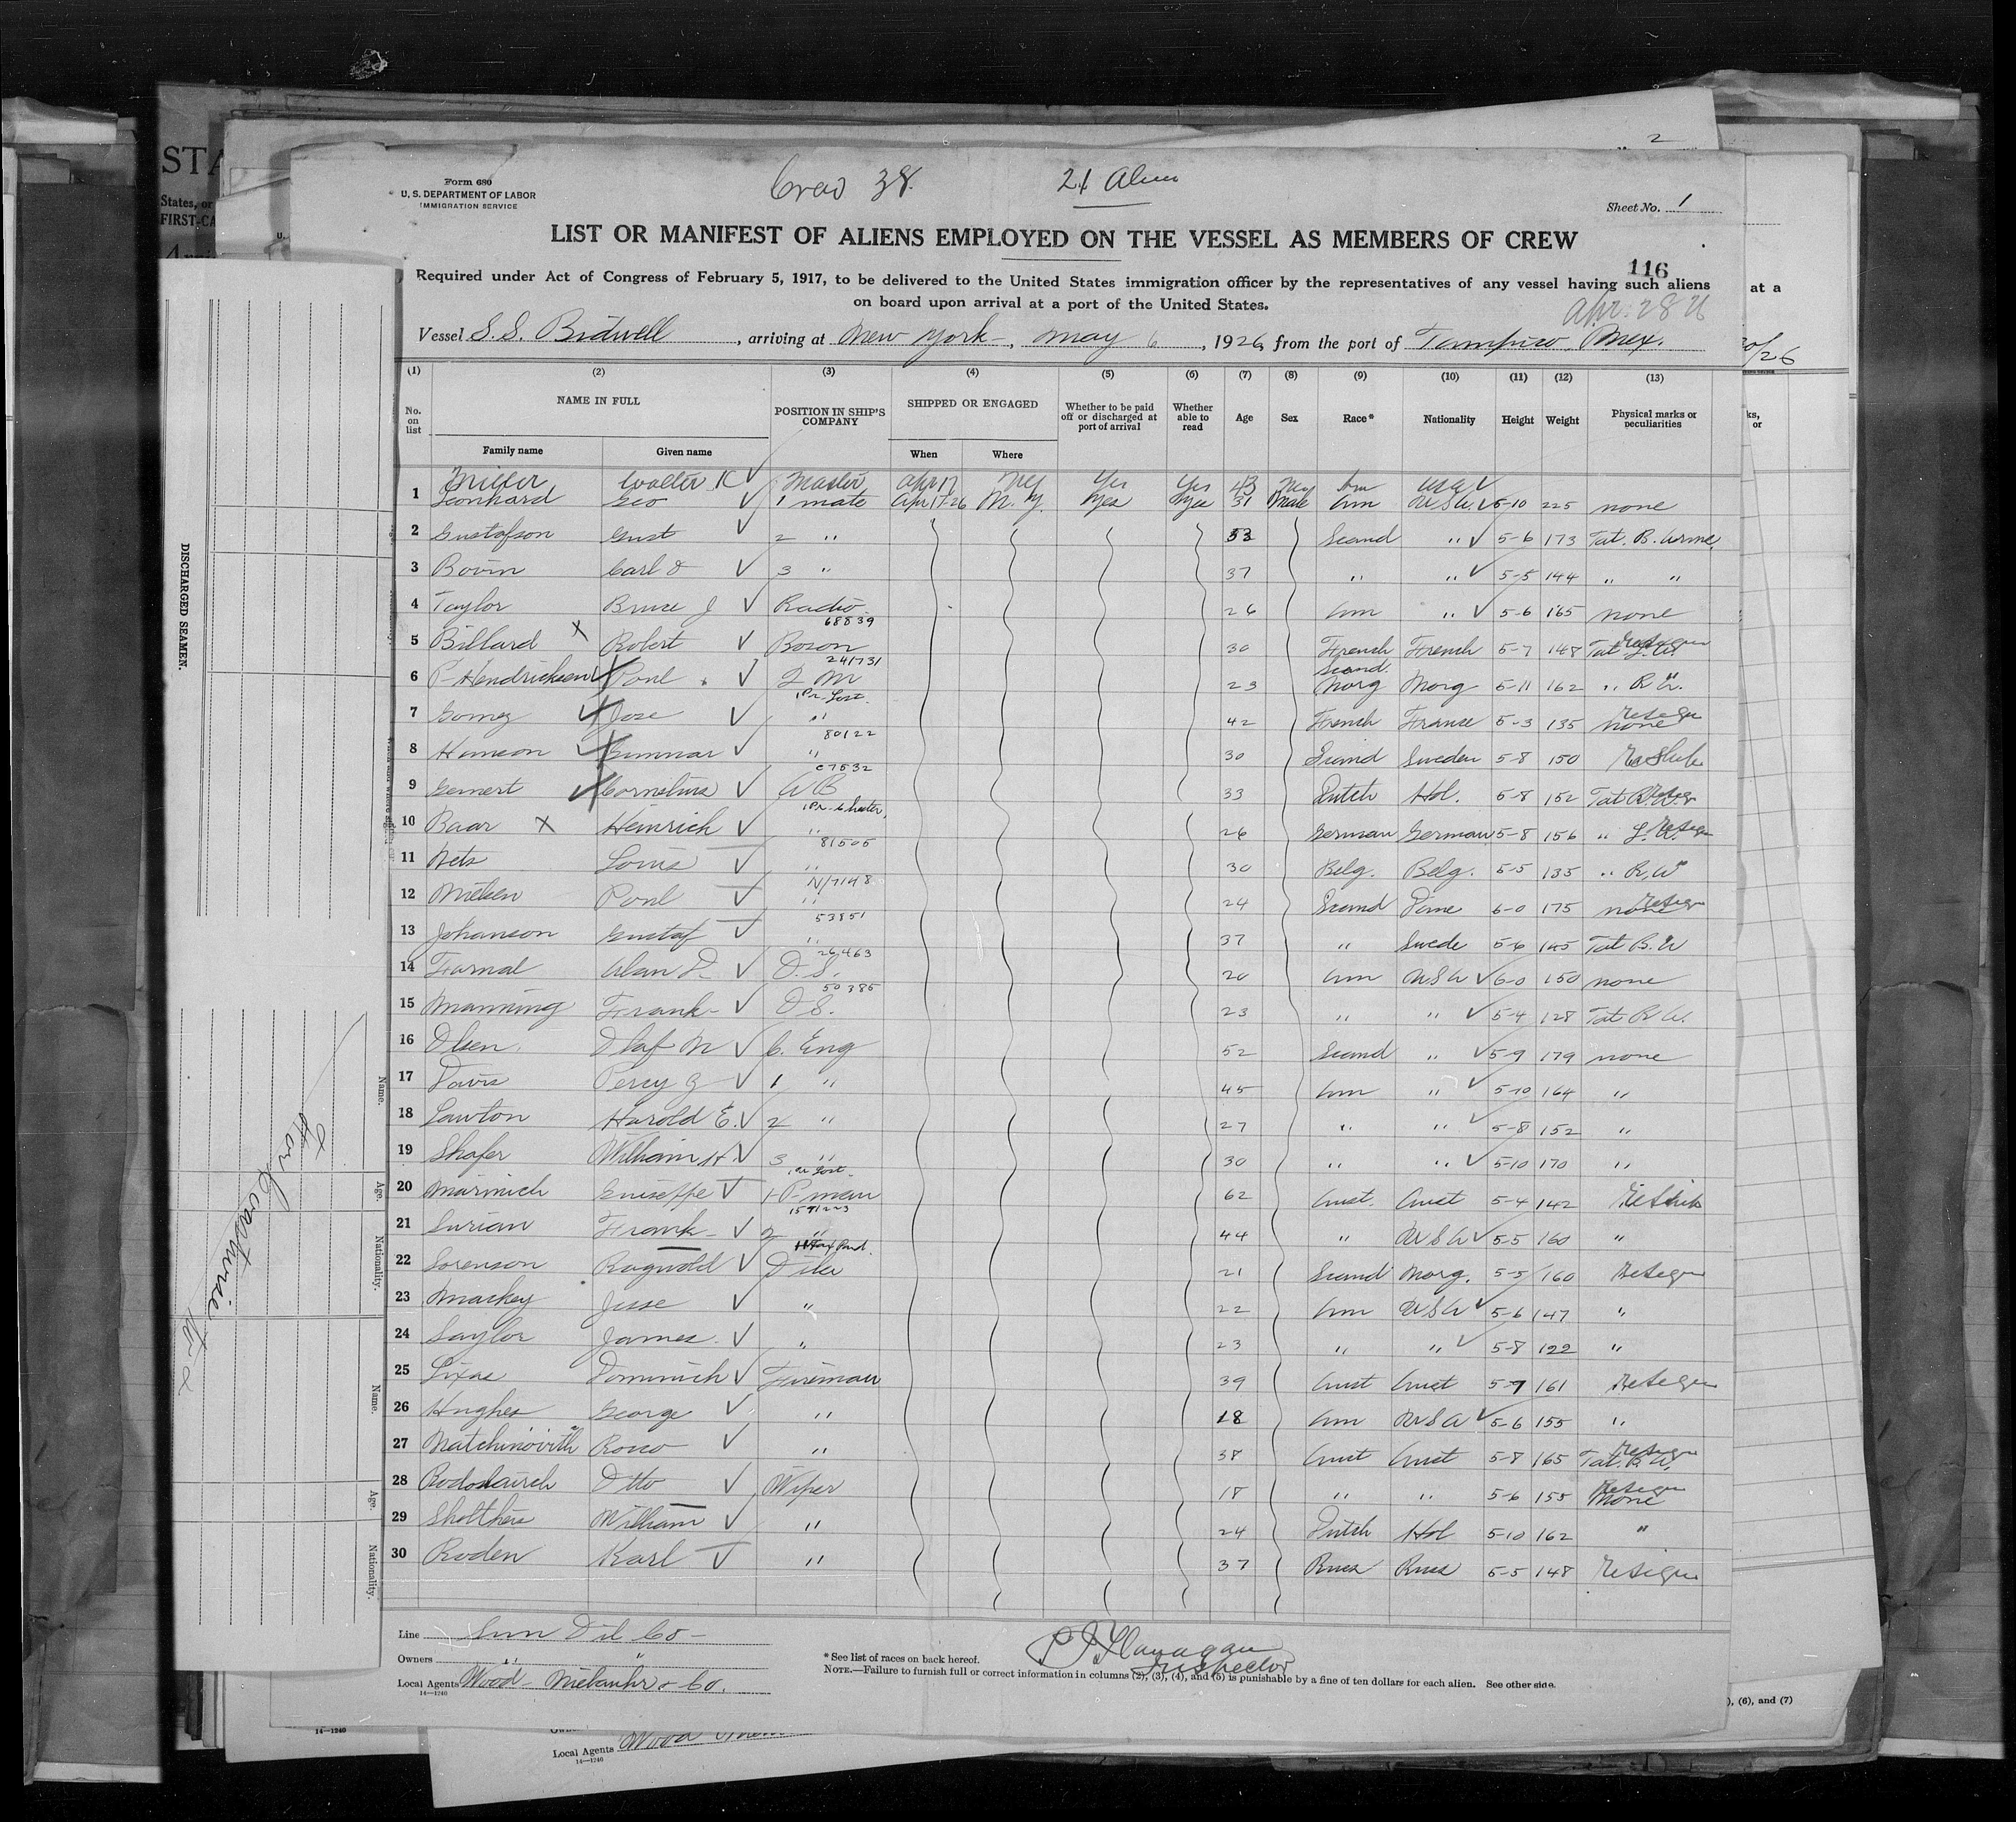 2
STA
States, or
FIRST-CA
Form 680
U. S. DEPARTMENT OF LABOR
IMMIGRATION SERVICE
Crew 38.
21 Alien
Sheet No. 1
LIST OR MANIFEST OF ALIENS EMPLOYED ON THE VESSEL AS MEMBERS OF CREW
116
Required under Act of Congress of February 5, 1917, to be delivered to the United States immigration officer by the representatives of any vessel having such aliens
at a
on board upon arrival at a port of the United States.
Apr. 28 26
Vessel S.S. Bidwell, arriving at New York, May 6, 1926, from the port of Tampico, Mex.
(1) (2) (3) (4) (5) (6) (7) (8) (9) (10) (11) (12) (13)
No. on list NAME IN FULL POSITION IN SHIP'S COMPANY SHIPPED OR ENGAGED Whether to be paid off or discharged at port of arrival Whether able to read Age Sex Race* Nationality Height Weight Physical marks or peculiarities
Family name Given name When Where
Miller Walter K Master Apr 17 NY Yes Yes 43 Am USA
1 Leonhard Geo 1 mate Apr 17-26 N.Y. Yes Yes 31 Male Am USA 5-10 225 none
2 Gustafson Gust 2 " 53 Scand " 5-6 173 Tat. B. Arms
3 Bovin Carl O 3 " 37 " " 5-5 144 " "
4 Taylor Bruce J Radio 26 Am " 5-6 165 none
68839
5 Billard X Robert Boson 30 French French 5-7 148 Tat. L.A.
241731
6 P-Hendricksen Poul Q M 23 Scand. Norg Norg 5-11 162 " R A.
Pr. Lost.
7 Gomez Jose " 42 French France 5-3 135 none
80122
8 Hanson Gunnar " 30 Scand Sweden 5-8 150
C7532
9 Gernert Cornelius AB 33 Dutch Hol. 5-8 152 Tat R.A.
10 Baar X Heinrich " 26 German German 5-8 156 " L.A.
81505
11 Nets Louis " 30 Belg. Belg. 5-5 135 " R, A
N/7148
12 Nielsen Poul " 24 Scand Dane 6-0 175 none
53851
13 Johanson Gustaf " 37 " Swede 5-6 145 Tat B. A
26463
14 Farnal Alan D. O.S. 20 Am USA 6-0 150 none
50385
15 Manning Frank O S. 23 " " 5-4 128 Tat R A.
16 Olsen Olaf M C. Eng 52 Scand " 5-9 179 none
17 Davis Percy G 1 " 45 Am " 5-10 164 "
18 Lawton Harold E. 2 " 27 " " 5-8 152 "
19 Shafer William H 3 " 30 " " 5-10 170 "
Pr Lost.
20 Marinich Guiseppe 1 P-man 62 Aust. Aust 5-4 142
1591223
21 Surian Frank 2 " 44 " USA 5-5 160 "
22 Sorenson Ragnvold Oiler 21 Scand Norg. 5-5 160
23 Mackey Jesse " 22 Am USA 5-6 147 "
24 Saylor James " 23 " " 5-8 122 "
25 Lixas Dominich Fireman 39 Aust Aust 5-9 161
26 Hughes George " 18 Am USA 5-6 155 "
27 Matchinovith Rocco " 38 Aust Aust 5-8 165 Tat. R A.
28 Otto Wiper 18 " " 5-6 155 none
29 Sholthers William " 24 Dutch Hol 5-10 162 "
30 Roden Karl " 37 Russ Russ 5-5 148
Line Sun Oil Co-
Owners " "
Local Agents Wood - Niebuhr & Co.
14—1240
P J Flanagan
Inspector
* See list of races on back hereof.
NOTE.—Failure to furnish full or correct information in columns (2), (3), (4), and (5) is punishable by a fine of ten dollars for each alien. See other side.
), (6), and (7)
DISCHARGED SEAMEN.
Name. Age. Nationality.
Name. Age. Nationality.
14—1240
Local Agents Wood
14—1240